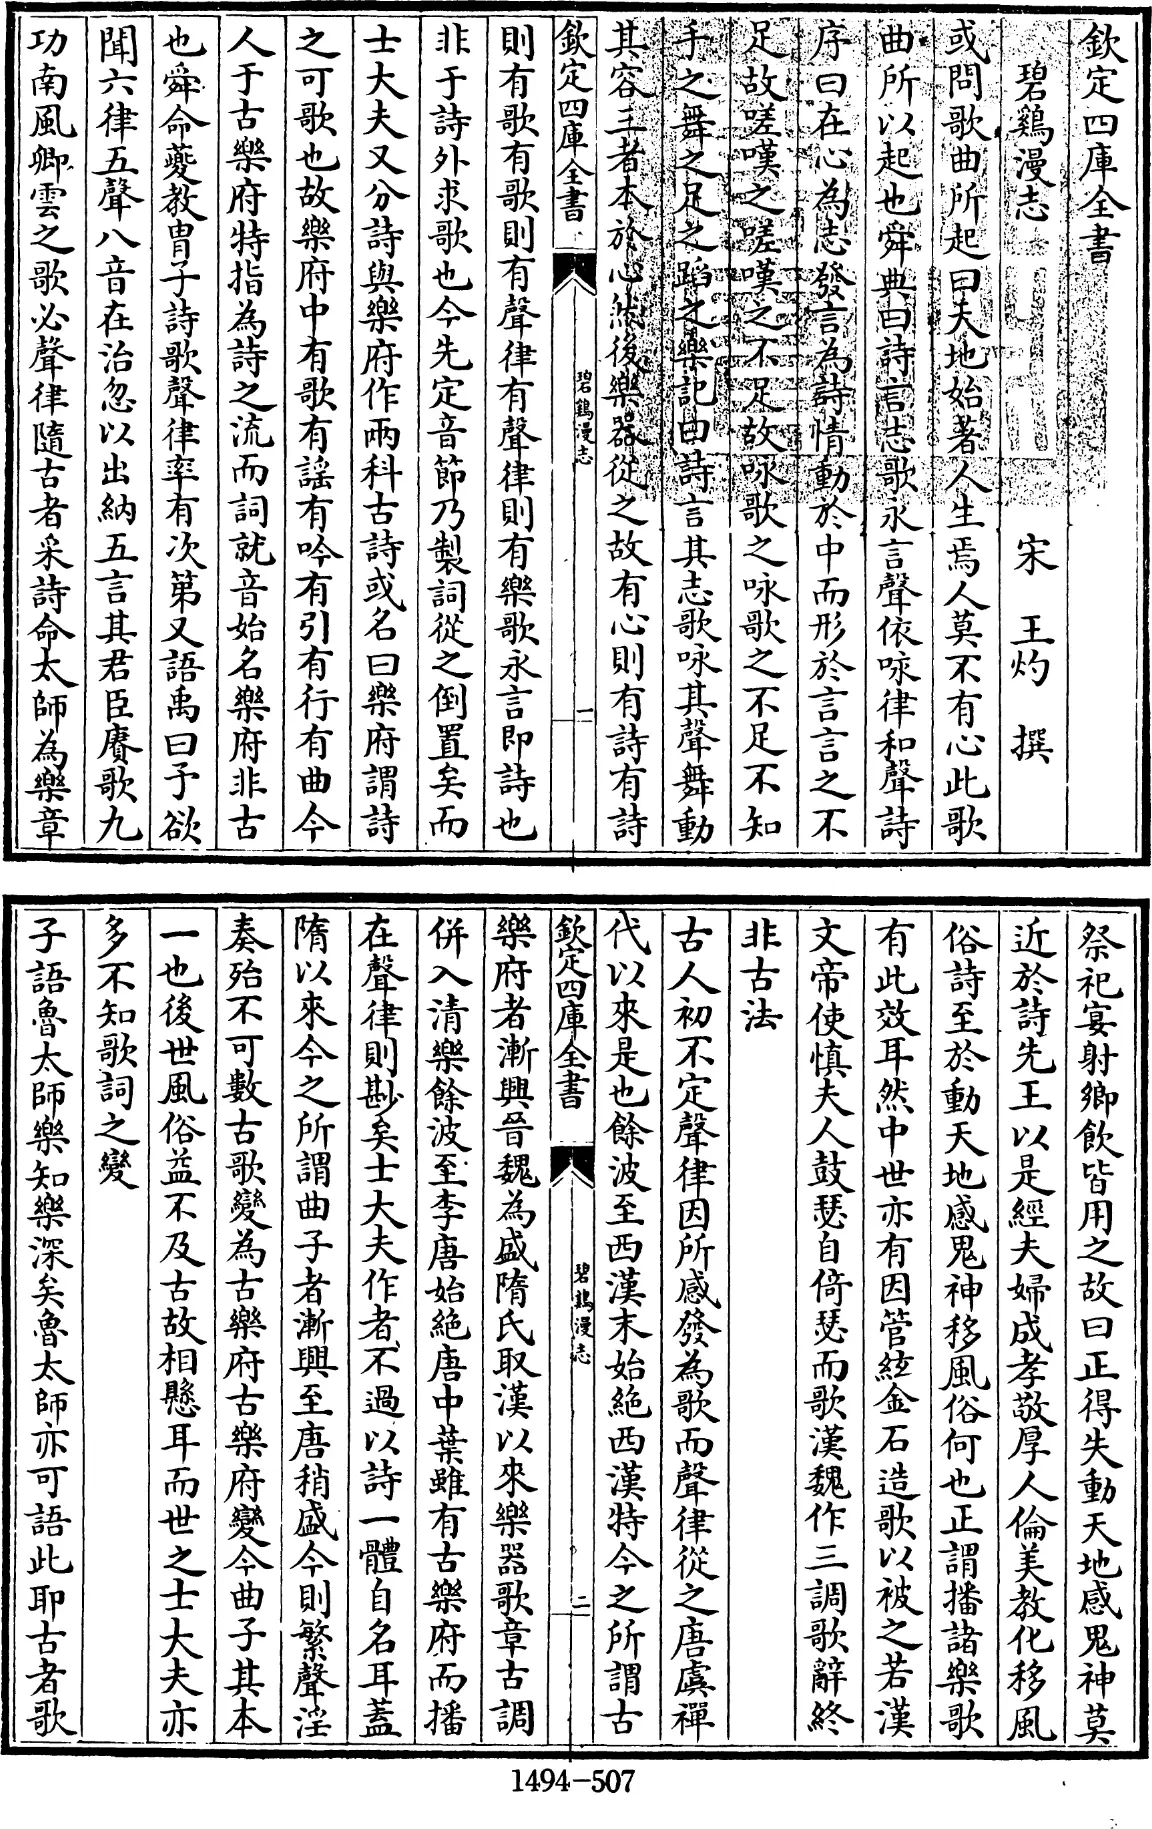 欽定四庫全書
碧鷄漫志
宋 王灼 撰
或問歌曲所起曰天地始著人生焉人莫不有心此歌
曲所以起也舜典曰詩言志歌永言聲依咏律和聲詩
序曰在心為志發言為詩情動於中而形於言言之不
足故嗟嘆之嗟嘆之不足故咏歌之咏歌之不足不知
手之舞之足之蹈之樂記曰詩言其志歌咏其聲舞動
其容三者本於心然後樂器從之故有心則有詩有詩
欽定四庫全書
碧鷄漫志
一
則有歌有歌則有聲律有聲律則有樂歌永言即詩也
非于詩外求歌也今先定音節乃製詞從之倒置矣而
士大夫又分詩與樂府作兩科古詩或名曰樂府謂詩
之可歌也故樂府中有歌有謠有吟有引有行有曲今
人于古樂府特指為詩之流而詞就音始名樂府非古
也舜命夔教胄子詩歌聲律率有次第又語禹曰予欲
聞六律五聲八音在治忽以出納五言其君臣賡歌九
功南風卿雲之歌必聲律隨古者采詩命太師為樂章
祭祀宴射鄉飲皆用之故曰正得失動天地感鬼神莫
近於詩先王以是經夫婦成孝敬厚人倫美教化移風
俗詩至於動天地感鬼神移風俗何也正謂播諸樂歌
有此效耳然中世亦有因管絃金石造歌以被之若漢
文帝使慎夫人鼓瑟自倚瑟而歌漢魏作三調歌辭終
非古法
古人初不定聲律因所感發為歌而聲律從之唐虞禪
代以來是也餘波至西漢末始絶西漢特今之所謂古
欽定四庫全書
碧鷄漫志
二
樂府者漸興晉魏為盛隋氏取漢以來樂器歌章古調
併入清樂餘波至李唐始絶唐中葉雖有古樂府而播
在聲律則尠矣士大夫作者不過以詩一體自名耳蓋
隋以來今之所謂曲子者漸興至唐稍盛今則繁聲淫
奏殆不可數古歌變為古樂府古樂府變今曲子其本
一也後世風俗益不及古故相懸耳而世之士大夫亦
多不知歌詞之變
子語魯太師樂知樂深矣魯太師亦可語此耶古者歌
1494-507